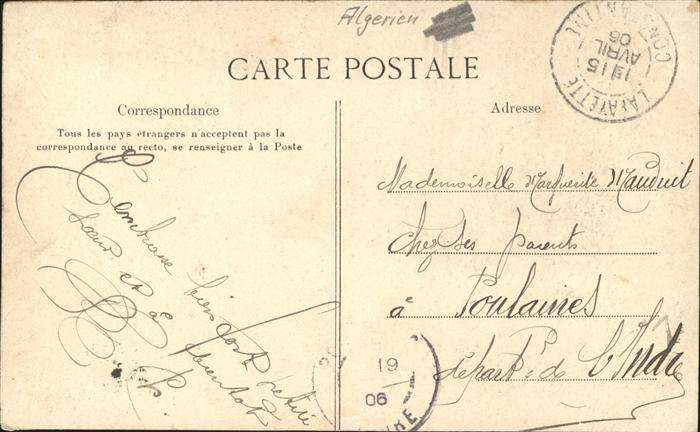 Algerien
CARTE POSTALE
Correspondance
Tous les pays étrangers n'acceptent pas la
correspondance au recto, se renseigner à la Poste
J'embrasse bien fort
sœur et à bientôt
Adresse
Mademoiselle Marguerite Mauduit
chez ses parents
à Poulaines
départt de l'Indre
LAFAYETTE
15
AVRIL
06
CONSTANTINE
19
06